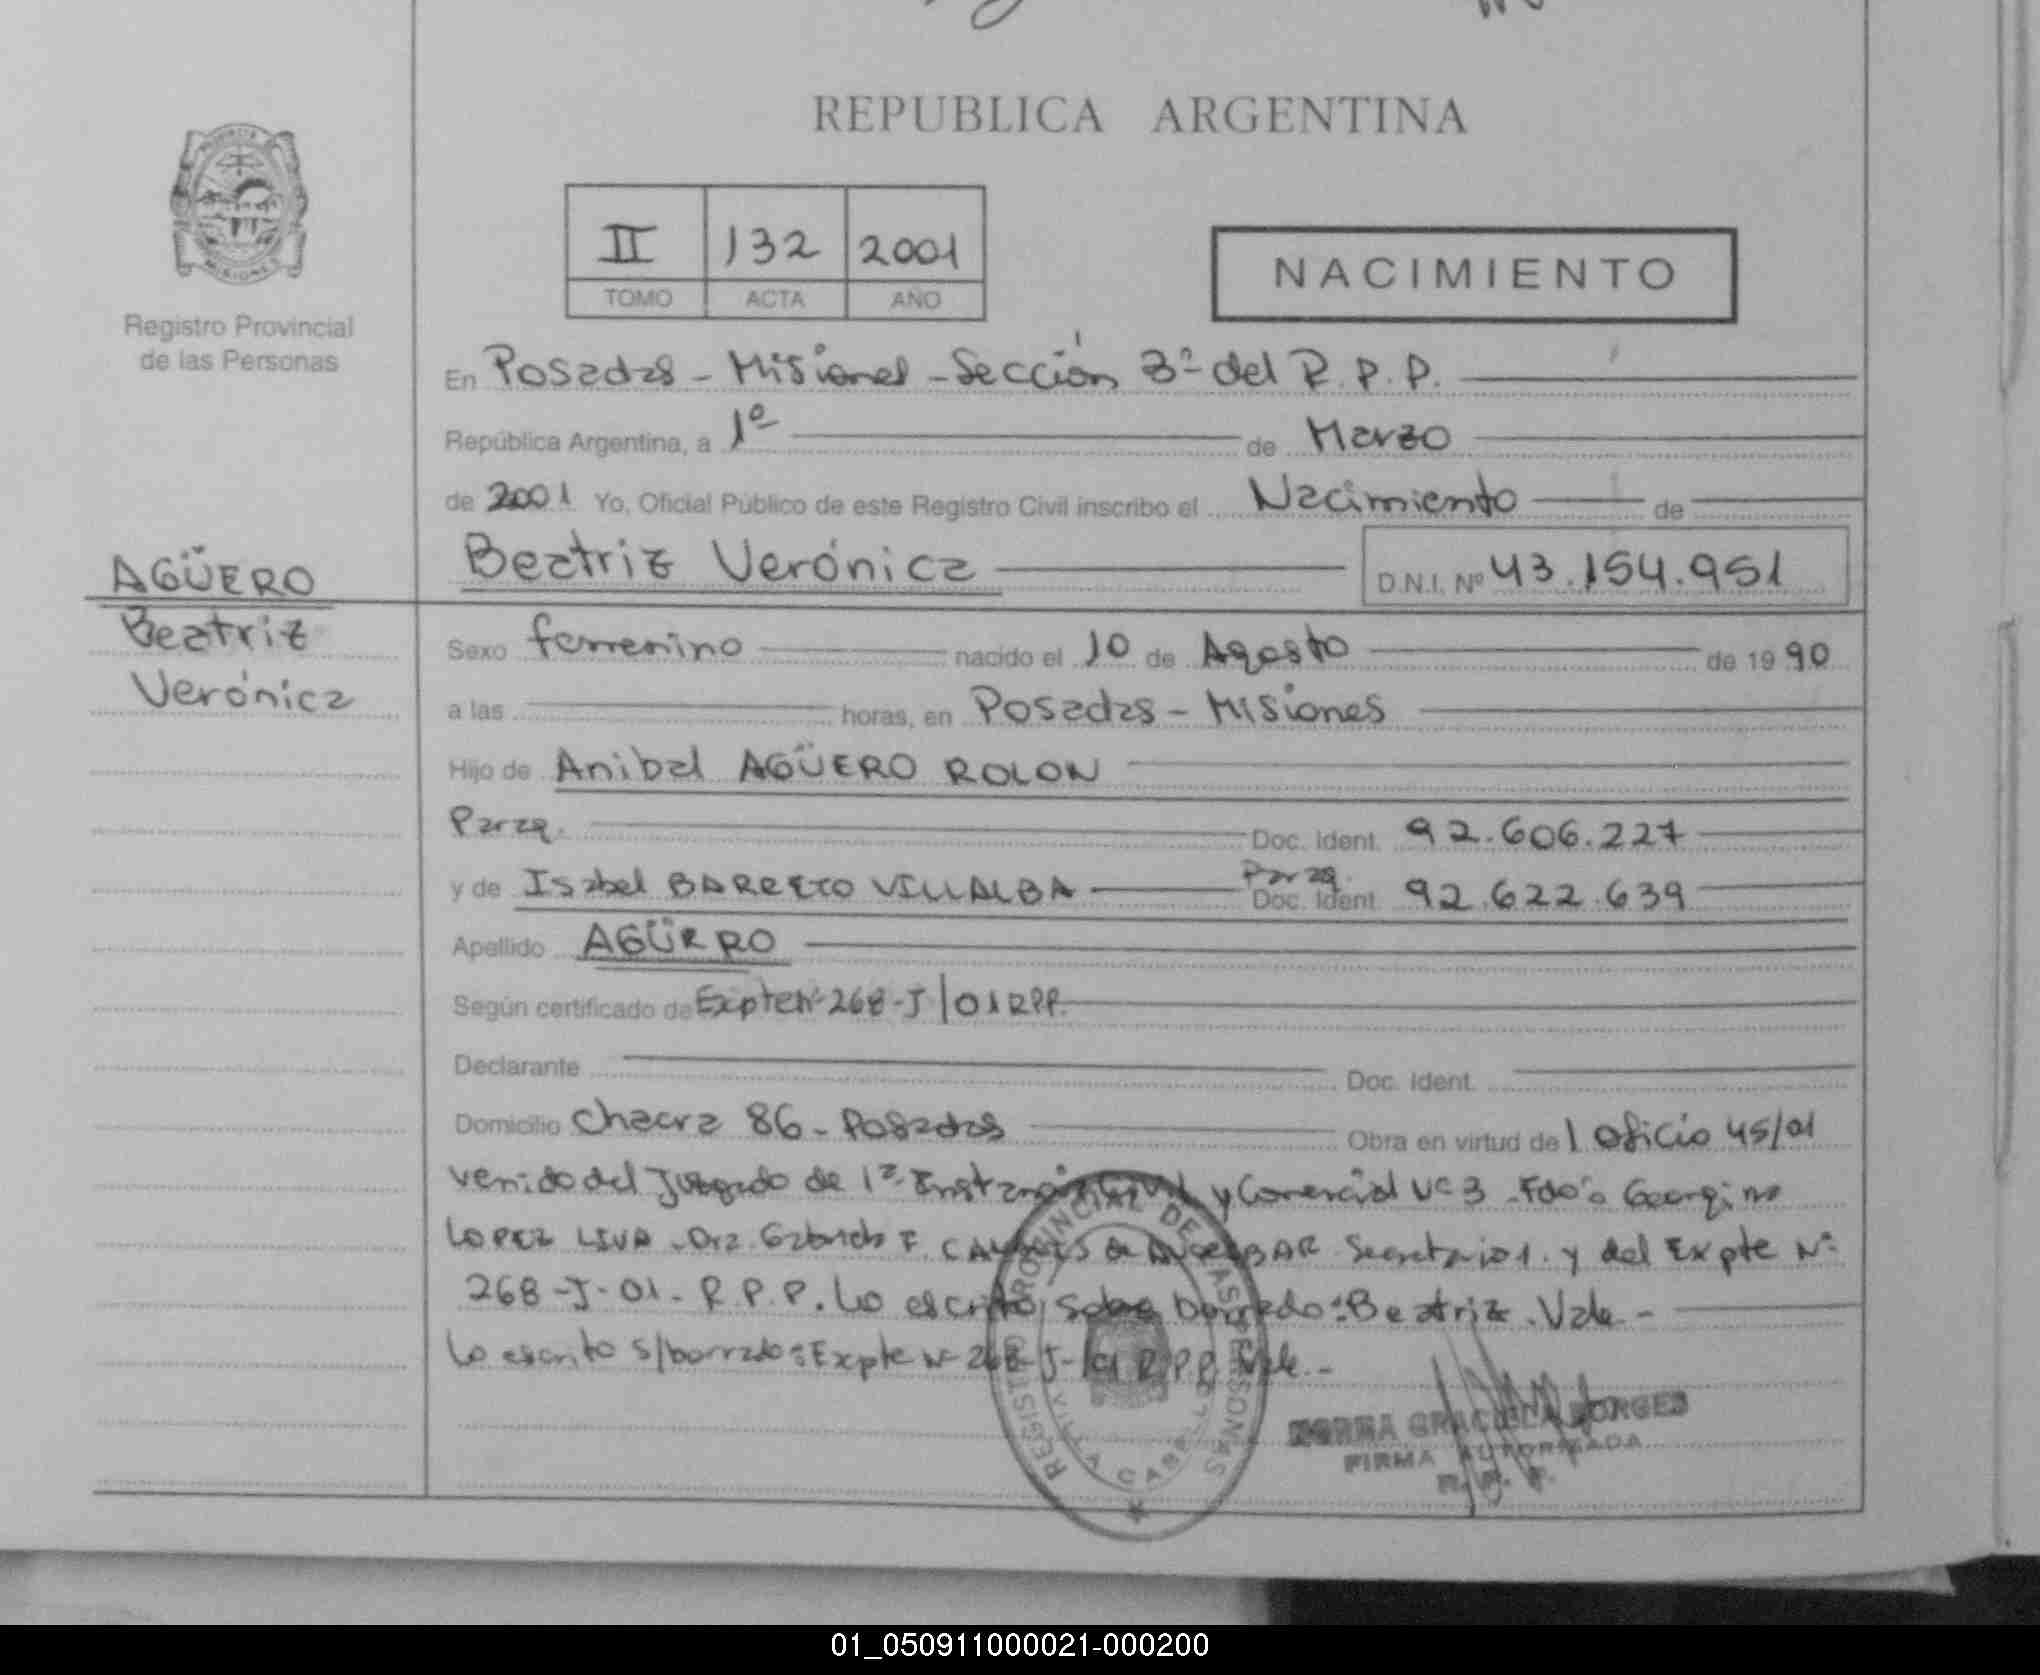 REPUBLICA ARGENTINA
MISIONES
Registro Provincial
de las Personas
II 132 2001
TOMO ACTA AÑO
NACIMIENTO
En Posadas - Misiones - Sección 3ª del R.P.P.
República Argentina, a 1º de Marzo
de 2001 Yo, Oficial Público de este Registro Civil inscribo el Nacimiento de
Beatriz Verónica D.N.I. Nº 43.154.951
AGÜERO
Beatriz
Verónica
Sexo femenino nacido el 10 de Agosto de 1990
a las horas, en Posadas - Misiones
Hijo de Anibal AGÜERO ROLON
Parag. Doc. Ident. 92.606.227
y de Isabel BARRETO VILLALBA Parag. Doc. Ident 92.622.639
Apellido AGÜERO
Según certificado de Expte Nº 268-J/01 RPP.
Declarante Doc. Ident.
Domicilio Chacra 86 - Posadas Obra en virtud del Oficio 45/01
venido del Juzgado de 1ª Instancia Civil y Comercial Nº 3 - Fdo:
LOPEZ Dra. Gabriela F. de Secretaria 1. y del Expte Nº
268-J-01- R.P.P. Lo escrito sobre borrado: Beatriz. Vale -
Lo escrito s/borrado: Expte Nº 268-J-01 R.P.P. Vale.-
REGISTRO PROVINCIAL DE LAS PERSONAS
NORMA GRACIELA BORGES
FIRMA AUTORIZADA
R. P. P.
01_050911000021-000200